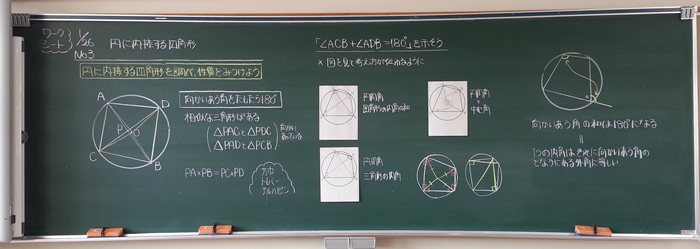 ワーク
シート
1/26
No3
円に内接する四角形
円に内接する四角形を調べ、性質をみつけよう
A
D
P
C
B
向かいあう角をたしたら180°
相似な三角形がある
△PACと△PDC
△PADと△PCB
向かい
あっている
PA×PB=PC×PD
「∠ACB+∠ADB=180°」を示そう
× 図を見て考え方が伝わるように
円周角
四角形の内角の和
円周角
と
中心角
円周角
三角形の内角
向かいあう角の和は180°になる
1つの内角は、それに向かいあう角の
となりにある外角に等しい